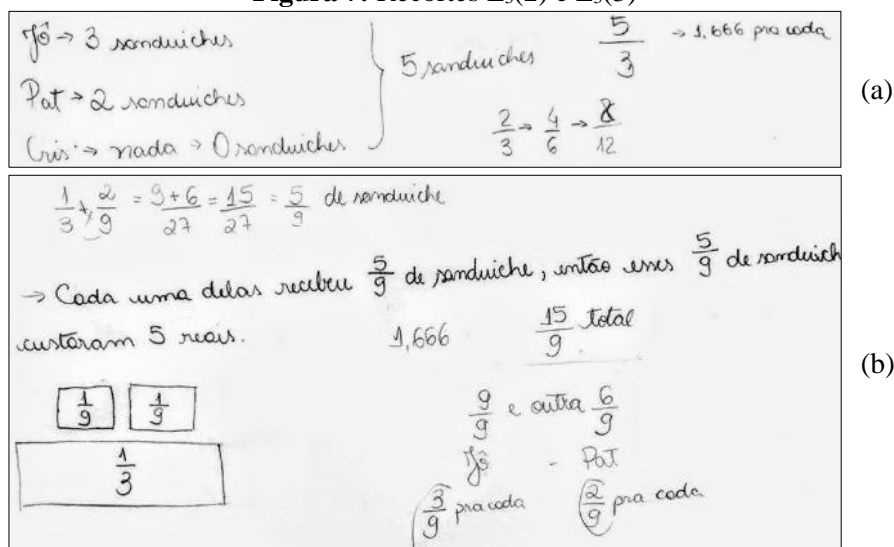 Jô → 3 sanduiches
Pat → 2 sanduiches
Cris → nada → 0 sanduiches
5 sanduiches
5/3 → 1,666 pra cada
2/3 → 4/6 → 8/12
(a)
1/3 + 2/9 = 9+6/27 = 15/27 = 5/9 de sanduiche
→ Cada uma delas recebeu 5/9 de sanduiche, então esses 5/9 de sanduich
custaram 5 reais.
1,666
15/9 total
(b)
1/9 1/9
1/3
9/9 e outra 6/9
Jô - Pat
3/9 pra cada 2/9 pra cada